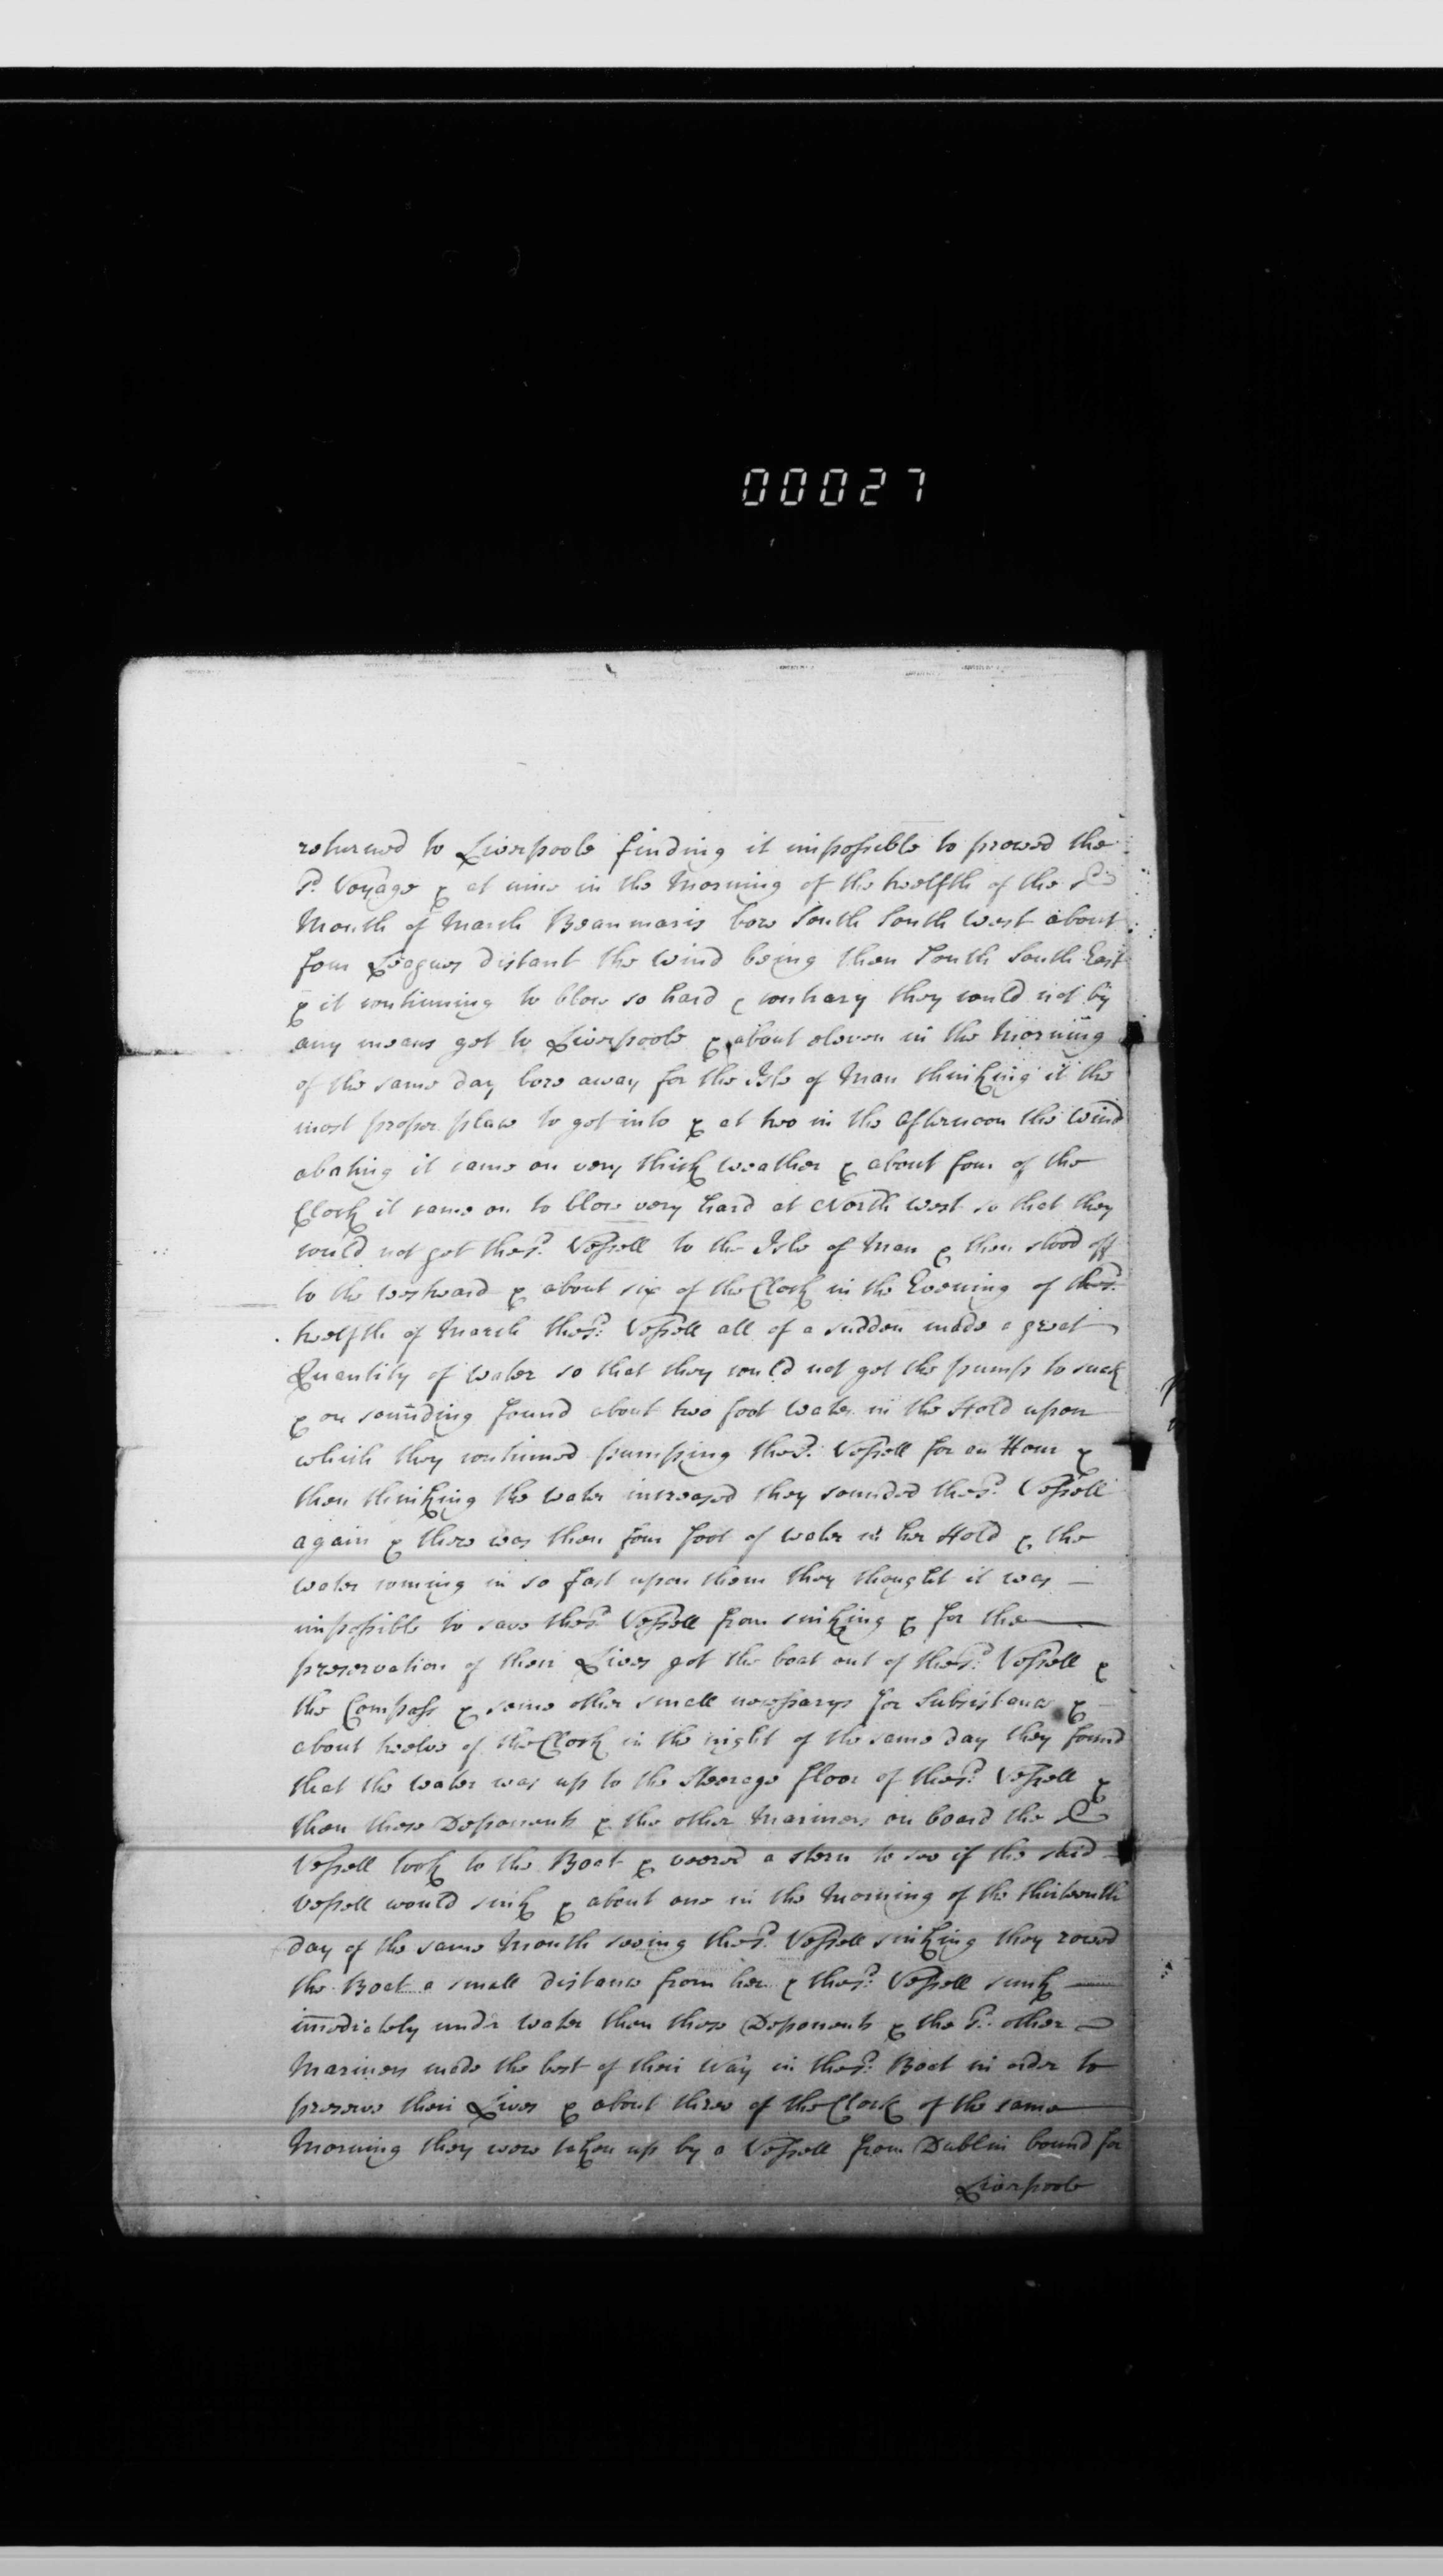 00027
returned to Liverpoole finding it impossible to proceed the
sd. Voyage & at nine in the Morning of the twelfth of the sd
Month of March Beaumaris bore South South West about
four Leagues distant the Wind being then South South East
& it continuing to blow so hard & contrary they could not by
any means get to Liverpoole & about eleven in the Morning
of the same day bore away for the Isle of Man thinking it the
most proper place to get into & at two in the Afternoon the Wind
abating it came on very thick Weather & about four of the
Clock it came on to blow very hard at North West so that they
could not get the sd. Vessell to the Isle of Man & then stood off
to the Westward & about six of the Clock in the Evening of the sd.
twelfth of March the sd. Vessell all of a sudden made a great
Quantity of Water so that they could not get the pump to suck
& on sounding found about two foot Water in the Hold upon
which they continued pumping the sd. Vessell for an Hour &
then thinking the Water increased they sounded the sd. Vessell
again & there was then four foot of Water in her Hold & the
Water coming in so fast upon them they thought it was
impossible to save the sd. Vessell from sinking & for the
preservation of their Lives got the boat out of the sd. Vessell &
the Compass & some other small necessarys for Subsistance &
about twelve of the Clock in the night of the same day they found
that the Water was up to the Steerage floor of the sd. Vessell &
then these Deponents & the other Mariners on board the sd
Vessell took to the Boat & veered a stern to see if the said
Vessell would sink & about one in the Morning of the thirteenth
day of the same Month seeing the sd. Vessell sinking they rowed
the Boat a small distance from her & the sd. Vessell sunk
im̄ediately under Water then these Deponents & the sd. other
Mariners made the best of their Way in the sd. Boat in order to
preserve their Lives & about three of the Clock of the same
Morning they were taken up by a Vessell from Dublin bound for
Liverpoole